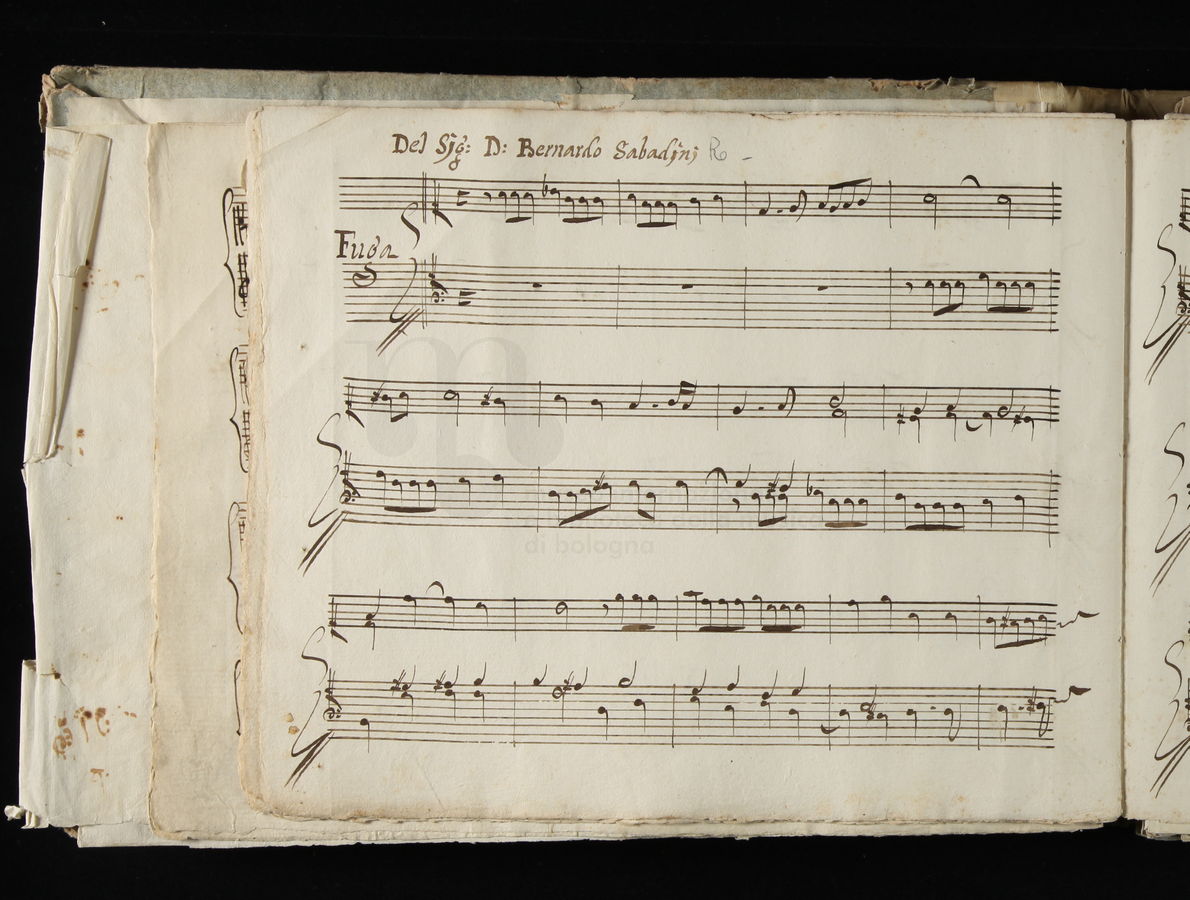 Del Sig: D: Bernardo Sabadini
Fuga
di bologna